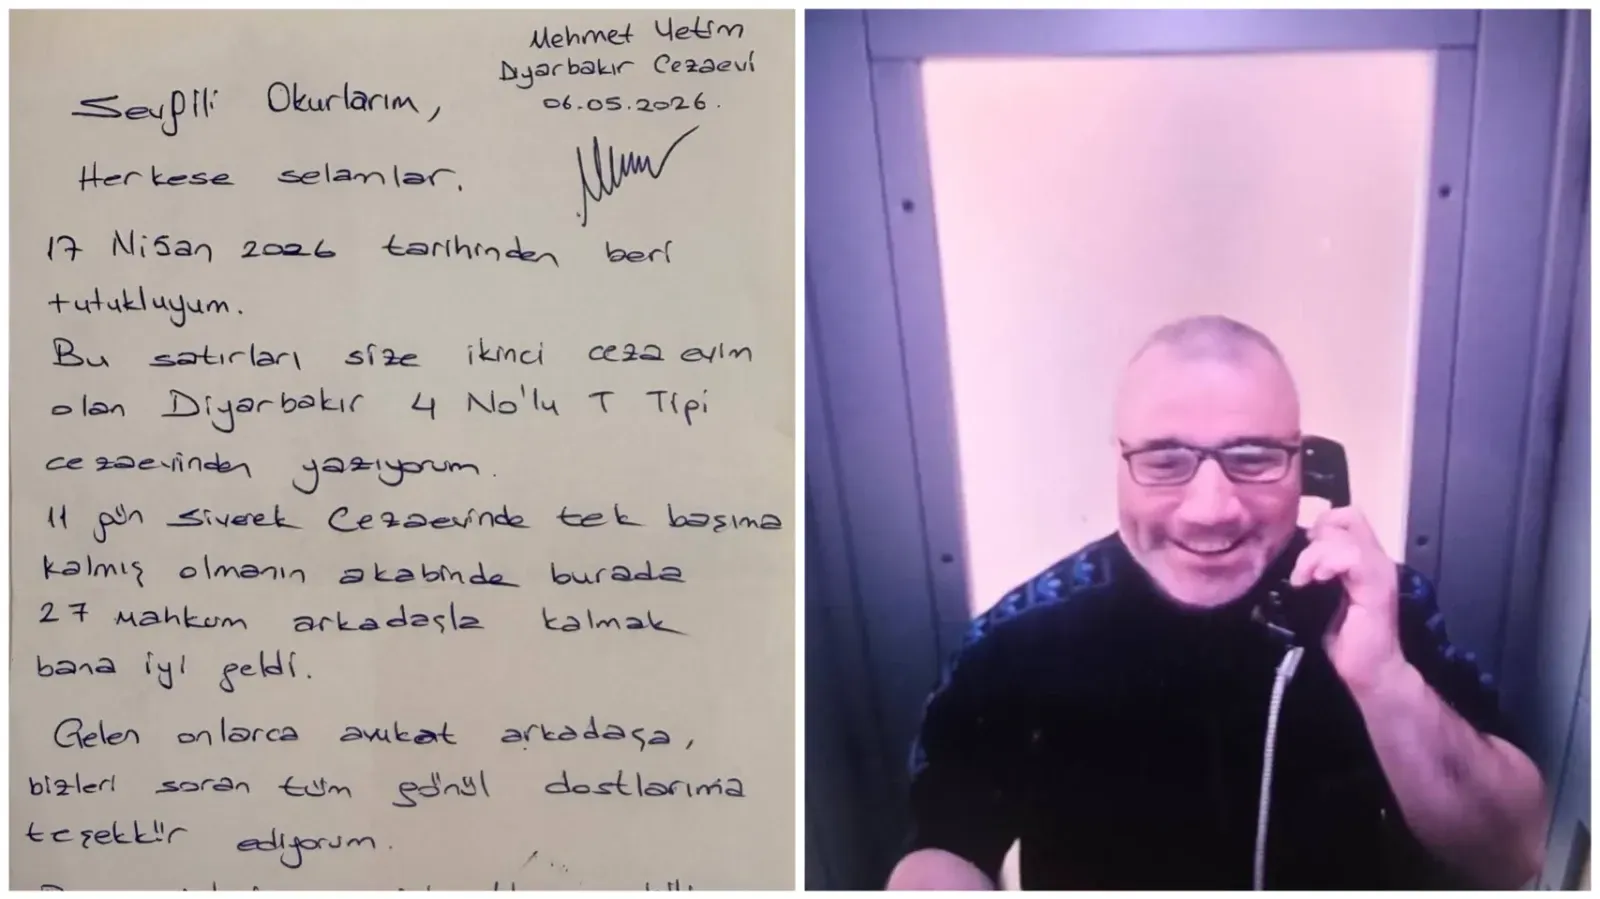 Mehmet Yetim
Diyarbakır Cezaevi
06.05.2026.
Sevgili Okurlarım,
Herkese selamlar.
17 Nisan 2026 tarihinden beri
tutukluyum.
Bu satırları size ikinci ceza evim
olan Diyarbakır 4 No'lu T Tipi
cezaevinden yazıyorum.
11 gün Siverek Cezaevinde tek başıma
kalmış olmanın akabinde burada
27 mahkum arkadaşla kalmak
bana iyi geldi.
Gelen onlarca avukat arkadaşa,
bizleri soran tüm gönül dostlarıma
teşekkür ediyorum.